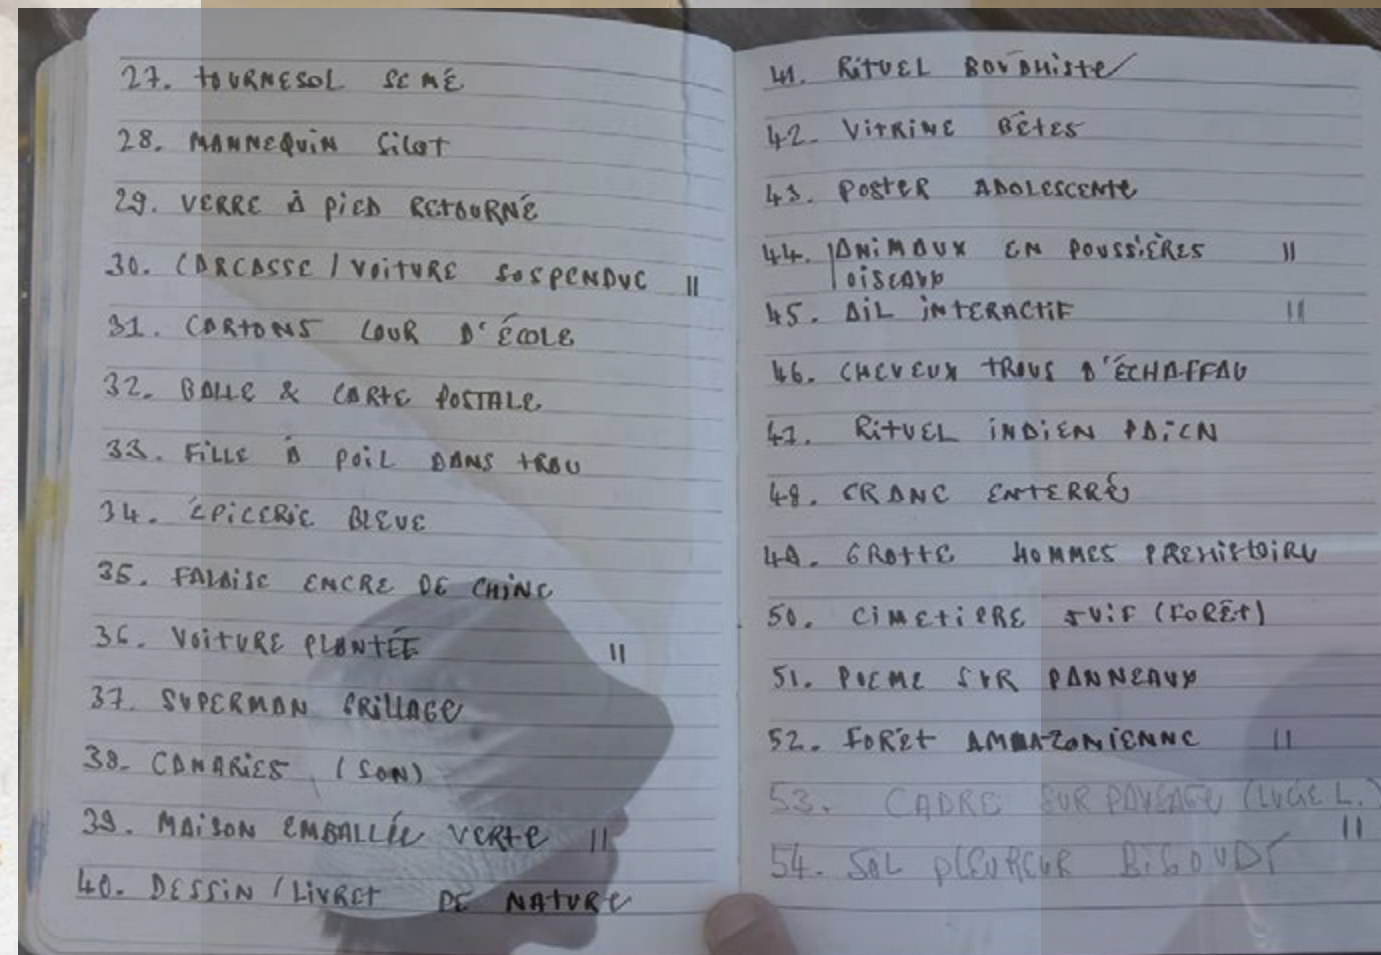 27. TOURNESOL SEMÉ
28. MANNEQUIN SILOT
29. VERRE À PIED RETOURNÉ
30. CARCASSE / VOITURE SOSPENDUE II
31. CARTONS COUR D'ÉCOLE
32. BALLE & CARTE POSTALE
33. FILLE À POIL DANS TROU
34. ÉPICERIE BLEUE
35. FALAISE ENCRE DE CHINE
36. VOITURE PLANTÉE II
37. SUPERMAN GRILLAGE
38. CANARIES (SON)
39. MAISON EMBALLÉE VERTE II
40. DESSIN / LIVRET DE NATURE
41. RITUEL BOUDHISTE
42. VITRINE BÊTES
43. POSTER ADOLESCENTE
44. ANIMAUX EN POUSSIÈRES II
OISEAUX
45. AIL INTERACTIF II
46. CHEVEUX TROUS D'ÉCHAFFAU
47. RITUEL INDIEN PAIEN
48. CRANE ENTERRÉ
49. GROTTE HOMMES PREHISTOIRE
50. CIMETIERE JUIF (FORÊT)
51. POEME SUR PANNEAUX
52. FORET AMMAZONIENNE II
53. CADRE SUR PAYSAGE (LUCIE L.)
II
54. SOL PLEUREUR BIGOUDI